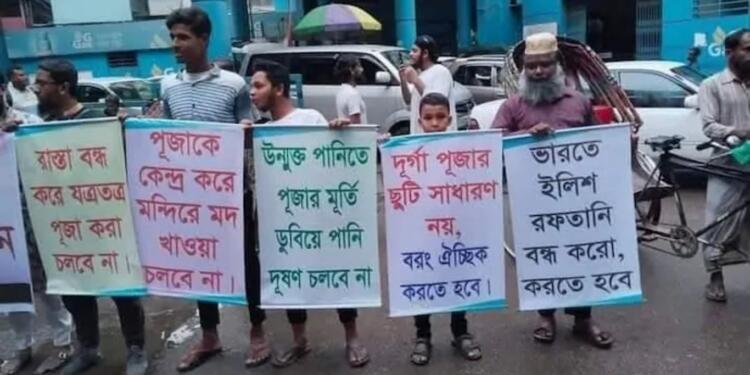 রাস্তা বন্ধ
করে যত্রতত্র
পূজা করা
চলবে না।
পূজাকে
কেন্দ্র করে
মন্দিরে মদ
খাওয়া
চলবে না।
উন্মুক্ত পানিতে
পূজার মূর্তি
ডুবিয়ে পানি
দূষণ চলবে না
দূর্গা পূজার
ছুটি সাধারণ
নয়,
বরং ঐচ্ছিক
করতে হবে।
ভারতে
ইলিশ
রফতানি
বন্ধ করো,
করতে হবে